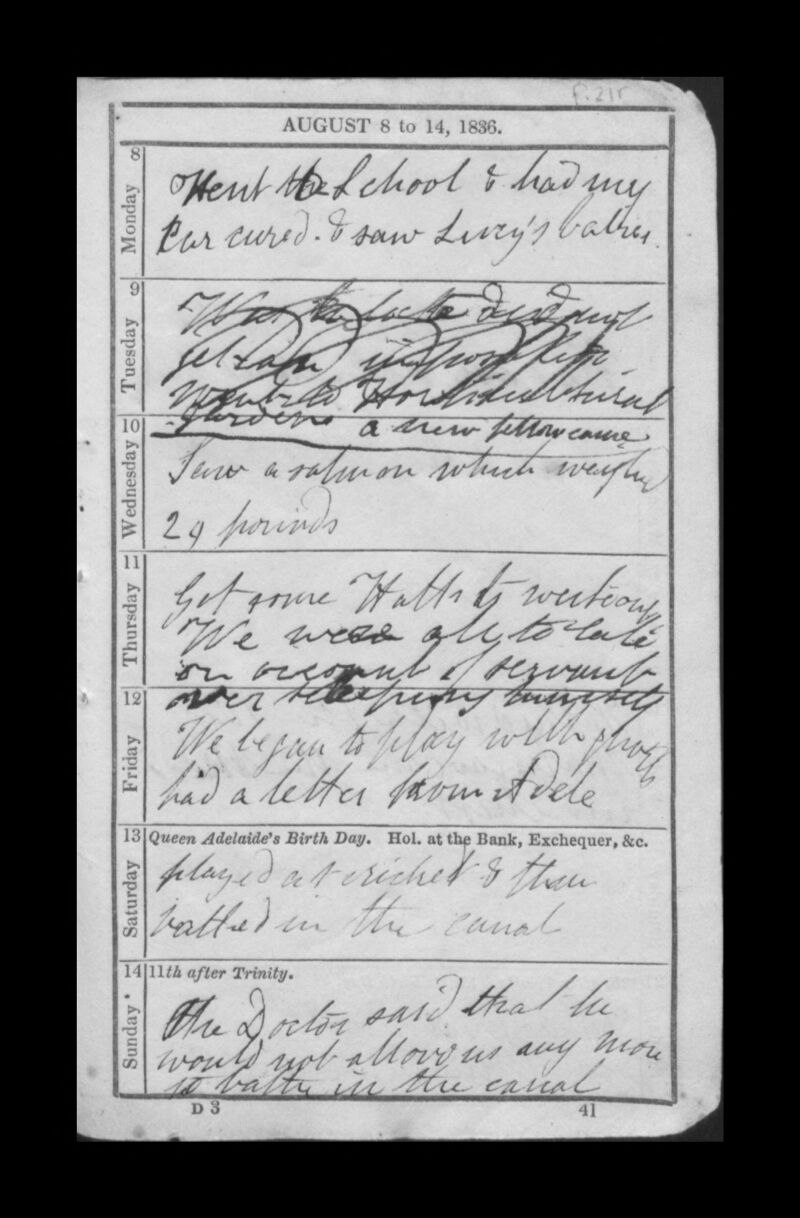 P. 21r
AUGUST 8 to 14, 1836.
8 Monday
Went to School & had my
Ear cured. & saw Livey's
9 Tuesday
Was too late did not
get
went to Horticultural
Gardens a new fellow came
10 Wednesday
Saw a salmon which weighed
29 pounds
11 Thursday
Got some
We were all to late
on account of servants
over sleeping
12 Friday
We began to play with
had a letter from Adele
13 Saturday
Queen Adelaide's Birth Day. Hol. at the Bank, Exchequer, &c.
played at cricket & then
bathed in the canal
14 Sunday
11th after Trinity.
The Doctor said that he
would not allow us any more
to bathe in the canal
D 3 41